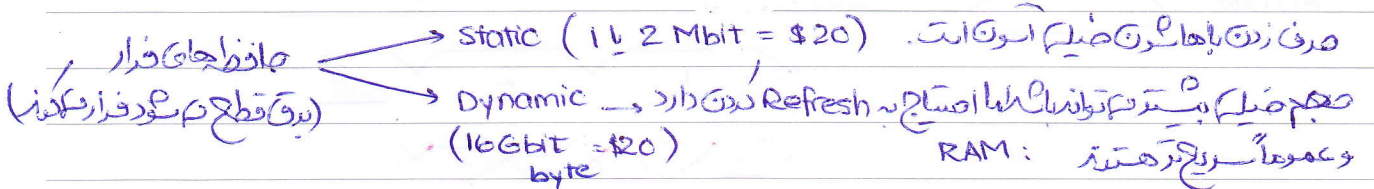 حافظه‌های فرار
(برق قطع می‌شود فرار می‌کنند)
Static (1 یا 2 Mbit = $20) حرف زدن باهاشون خیلی آسون است.
Dynamic → حجم خیلی بیشتر می‌تواند باشد اما احتیاج به Refresh کردن دارد
(16 Gbit = $20)
byte
RAM : و عموماً سریع‌تر هستند